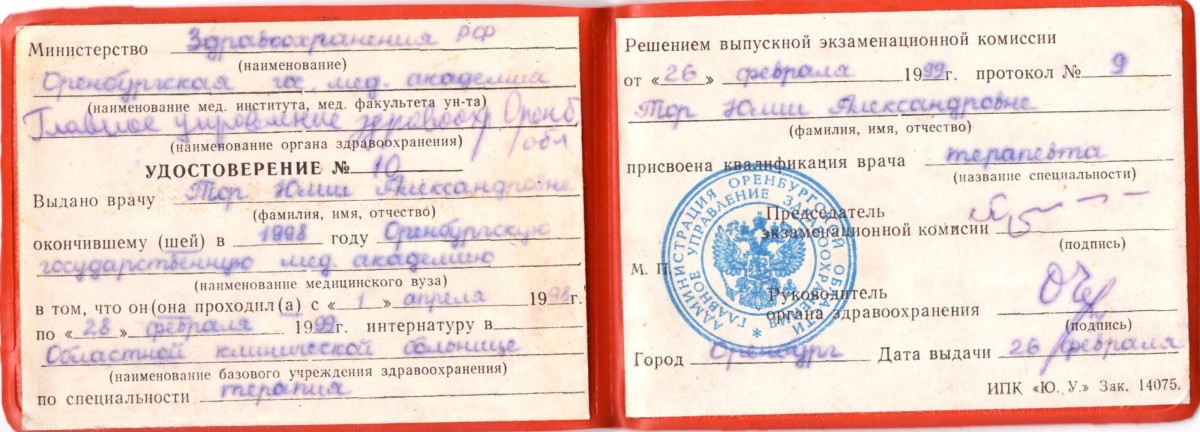 Министерство Здравоохранения РФ
(наименование)
Оренбургская гос. мед. академия
(наименование мед. института, мед. факультета ун-та)
Главное управление здравоохр Оренб.
обл
(наименование органа здравоохранения)
УДОСТОВЕРЕНИЕ № 10
Выдано врачу Тор Юлии Александровне
(фамилия, имя, отчество)
окончившему (шей) в 1998 году Оренбургскую
государственную мед. академию
(наименование медицинского вуза)
в том, что он (она проходил (а) с « 1 » апреля 1998г.
по «28» февраля 1999г. интернатуру в
Областной клинической больнице
(наименование базового учреждения здравоохранения)
по специальности терапия
Решением выпускной экзаменационной комиссии
от «26» февраля 1999г. протокол № 9
Тор Юлии Александровне
(фамилия, имя, отчество)
присвоена квалификация врача терапевта
(название специальности)
Председатель
экзаменационной комиссии
(подпись)
М. П.
Руководитель
органа здравоохранения
(подпись)
АДМИНИСТРАЦИЯ ОРЕНБУРГСКОЙ ОБЛАСТИ
ГЛАВНОЕ УПРАВЛЕНИЕ ЗДРАВООХРАНЕНИЯ
Город Оренбург Дата выдачи 26 февраля
ИПК «Ю. У.» Зак. 14075.